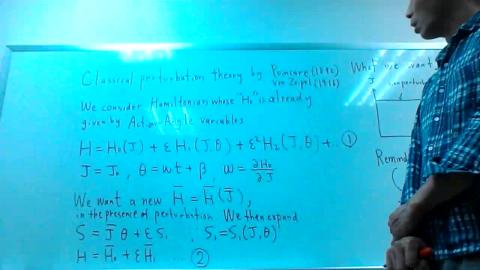 Classical perturbation theory by Poincare (1892)
von Zeipel (1916)
We consider Hamiltonian whose "H₀" is already
given by Action-Angle variables
H = H₀(J) + εH₁(J,θ) + ε²H₂(J,θ) + .. ①
J = J₀, θ = ωt + β, ω = ∂H₀/∂J
We want a new H̄ = H̄(J̄),
in the presence of perturbation. We then expand
S = J̄θ + εS₁, S₁ = S₁(J̄,θ)
H = H̄₀ + εH̄₁ .... ②
What we want
J